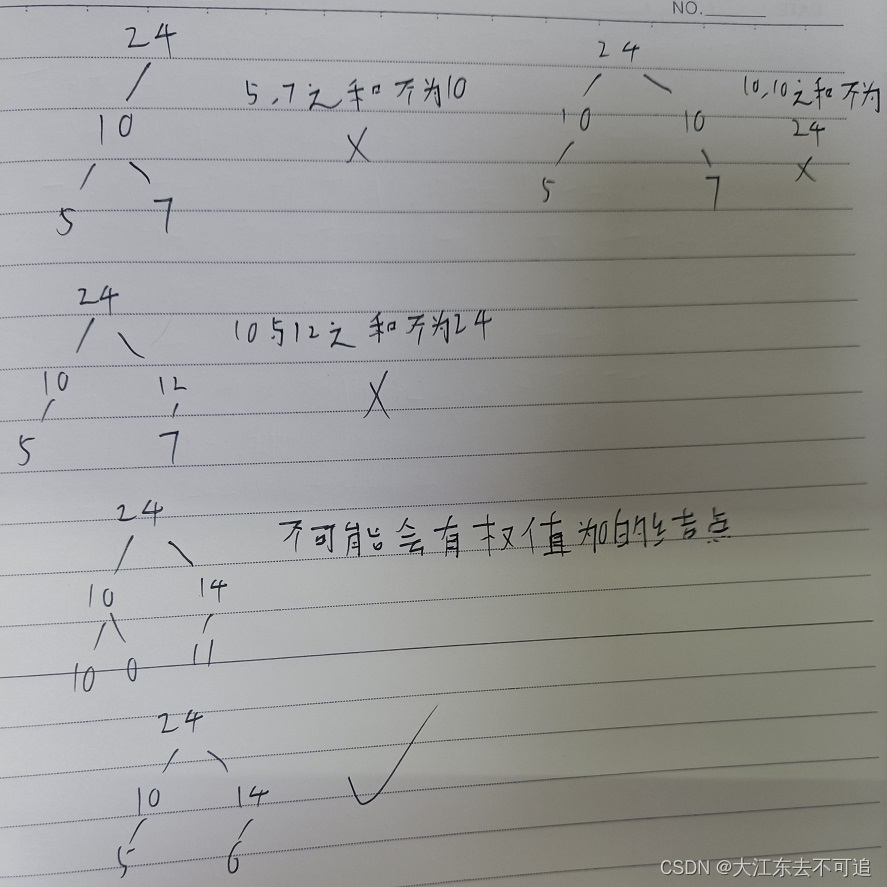 NO.
24
10
5 7
5,7之和不为10
X
24
10 10
5 7
10,10之和不为
24
X
24
10 12
5 7
10与12之和不为24
X
24
10 14
10 0 11
不可能会有权值为0的结点
24
10 14
5 6
CSDN @大江东去不可追